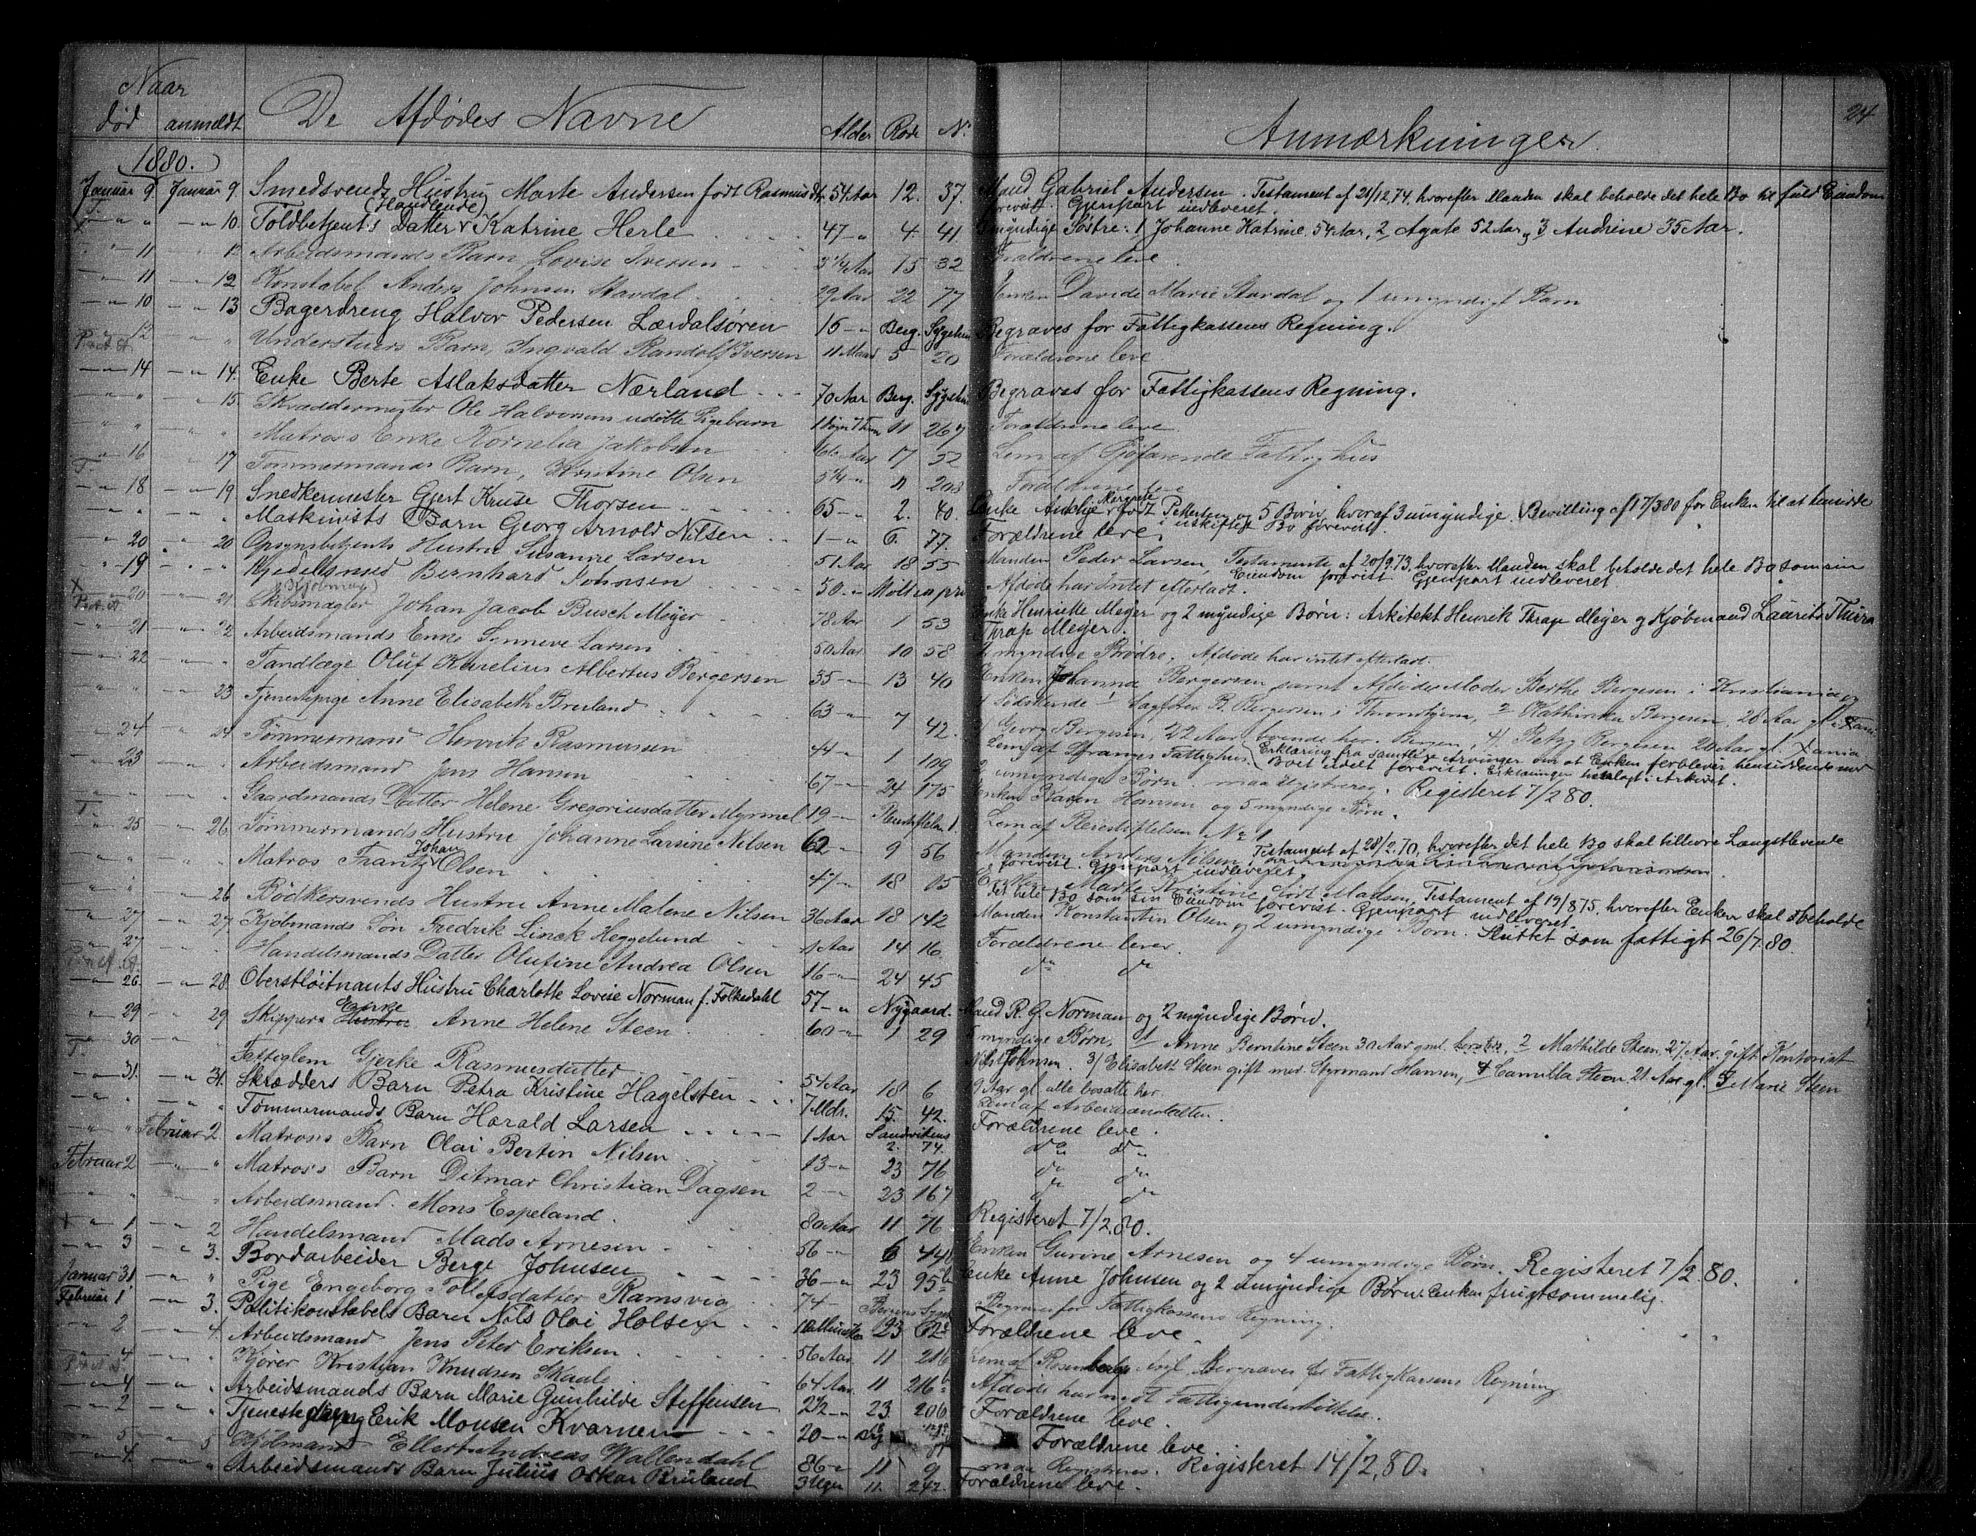 24
Naar
død anmeldt De Afdødes Navne Alder Rode No Anmærkninger.
1880.
Januar 9 Januar 9 Smedsvends Hustru Marte Andersen født Rasmusdtr 54 Aar 12. 37. Mand Gabriel Andersen. Testament af 21/12.74, hvorefter Manden skal beholde det hele Bo til fuld Eiendom
forevist. Gjenpart indleveret.
T. " " " 10. Toldbetjents Datter (Handlende) Katrine Herle 47 " 4 41. myndige Søstre: 1 Johanne Katrine, 54 Aar, 2, Agate 52 Aar og 3 Andrine 35 Aar.
" 11 " Arbeidsmands Barn Lovise Iversen 3 1/4 Aar 15 32 Forældrene leve.
" 11 " 12 Konstabel Anders Johnsen Stavdal 29 Aar 22 77 Enken Davide Marie Stavdal og 1 umyndigt Barn
" 10 " 13 Bagerdreng Halvor Pedersen Lærdalsøren 15 " Berg. Sygehus Begraves for Fattigkassens Regning.
" 12 " " Barn, Ingvald Randolf Iversen 11 Maan 5 20 Forældrene leve
" 14 " 14. Enke Berte Aslaksdatter Nærland 70 Aar Berg. Sygehus Begraves for Fattigkassens Regning.
" " " 15. Skræddermester Ole Halvorsens udøbte Pigebarn 11 267 Forældrene leve
" " " " Matros's Enke Kornelia Jakobsen 66 Aar 17 52 Lem af Søfarende Fattighus
T. " 16 " 17 Tømmermands Barn, Berntine Olsen 5 1/4 " 11 208 Forældrene leve
" 18 " 19. Snedkermester Gjert Kruse Thorsen 65 " 2. 40. Enke Margrete født Pettersen og 5 Børn, hvoraf 3 umyndige. Bevilling af 17/3 80 for Enken til at hensidde
i uskiftet Bo forevist.
" " " " Maskinists Barn Georg Arnold Nilsen 1 " 6. 77. Forældrene leve
" 20 " 20 Opsynsbetjents Hustru Susanne Larsen 51 Aar 18 55 Manden Peder Larsen, Testamente af 20/9.73, hvorefter Manden skal beholde det hele Bo som sin
Eiendom forevist Gjenpart indleveret
" 19 " " Kjedelsmed Bernhard Johnsen 50 " Afdøde har intet efterladt.
X " 20 " 21 Skibsmægler (Kjøbmand) Johan Jacob Busch Meyer 78 Aar 1 53 Enke Henriette Meyer og 2 myndige Børn: Arkitekt Henrik Thrap Meyer og Kjøbmand Laurits Thura
Thrap Meyer.
" 21 " 22 Arbeidsmands Enke Synneve Larsen 50 Aar 10 58 2 myndige Brødre. Afdøde har intet efterladt.
" 22 " " Tandlæge Oluf Kurelius Albertus Bergersen 35 " 13 40 Enken Johanna Bergersen samt Afdødes Moder Berthe Bergesen i Kristiania og
4 Sødskende 1 Sagfører B. Bergersen i Throndhjem, 2 Kathinka Bergesen, 26 Aar gl. Xania
" " " 23 Tjenestepige Anne Elisabeth Breiland 63 " 7 42. Georg Bergesen, 22 Aar, boende her i Bergen, 4, Petry Bergesen 20 Aar gl. Xania
" 24 " 24 Tømmermand Henrik Rasmussen 44 " 1 109 Lem af Stranges Fattighus Erklæring fra samtlige Arvinger om at Enken forbliver hensiddende med
Boet udelt forevist. Erklæringen henlagt i Arkivet.
2 umyndige Børn maa registreres. Registeret 7/2 80.
" 23 " " Arbeidsmand Jens Hansen 67 " 24 175 Enken Karen Hansen og 5 myndige Børn.
" " " " Gaardmands Datter Helene Gregoriusdatter Myrmel 19 " Pleiestiftelsen 1. Lem af Pleiestiftelsen No 1
T. " 25 " 26 Tømmermands Hustru Johanne Larsine Nilsen 62 " 9 56 Manden Anders Nilsen, Testament af 28/2.70, hvorefter det hele Bo skal tilhøre Længstlevende
forevist. Gjenpart indleveret.
" " " " Matros Frantz Johan Olsen 47 " 18 15 Marte Kristine født Madsen, Testament af 19/8 75, hvorefter Enken skal beholde
det hele Bo som sin Eiendom forevist. Gjenpart indleveret.
" " " 26 Bødkersvends Hustru Anne Malene Nilsen 36 Aar 18 142 Manden Konstantin Olsen og 2 umyndige Børn. Sluttet som fattigt 26/7 80.
" 27 " 27 Kjøbmands Søn Fredrik Linck Heggelund 1 Aar 14 16 Forældrene lever
" 27 " " Handelsmands Datter Olufine Andrea Olsen 16 " 24 45 do do
" 26 " 28. Oberstløitnants Hustru Charlotte Lovise Norman f. Folkedahl 57 " Nygaard. Mand R. G. Norman og 2 myndige Børn.
" 29 " 29 Skippers Enke Anne Helene Steen 60 " 1 29 5 myndige Børn, 1 Anne Berntine Steen 30 Aar gml., 2 Mathilde Steen, 27 Aar, gift Kontorist
Nils Johnsen. 3/ Elisabeth Steen gift med Styrmand Hansen, 4 Camilla Steen 21 Aar gl. 5 Marie Steen
9 Aar gl alle bosatte her.
T. " 30 Fattiglem Gjerke Rasmusdatter 54 Aar 18 6 Lem af Arbeidsanstalten.
" 31. " 31. Skrædders Barn Petra Kristine Hagelsten 7 Mdr. 15. 42. Forældrene leve.
" " " " Tømmermands Barn Harald Larsen 1 Aar Sandvikens 2. 74. do do
" " Februar 2. Matros's Barn Olai Bertin Nilsen 13 " 23 76 do do
Februar 2 " " Matros's Barn Ditmar Christian Dagsen 2 " 23 167 do do
" " " Arbeidsmand Mons Espeland. 80 Aar 11 76 Registeret 7/2 80.
" 1 " 2 Handelsmand Mads Arnesen 56 " 6 44 Enken Gurine Arnesen og 4 umyndige Børn. Registeret 7/2 80.
" 3 " 3. Bordarbeider Berge Johnsen 36 " 23 95 b Enke Anne Johnsen og 2 umyndige Børn. Enken frugtsommelig.
Januar 31 " " Pige Engeborg Tollefsdatter Ramsvig 74 " Begraves for Fattigkassens Regning.
Februar 1 " 3. Politikonstabels Barn Nils Olai Holsen 23 Forældrene leve.
" 2 " 4. Arbeidsmand Jens Peter Eriksen 56 Aar 11 216 Lem af Begraves for Fattigkassens Regning
" 4 " " Kjører Kristian Knudsen Skaale 64 Aar 11 216 b Afdøde har nydt Fattigunderstøttelse.
" 4 " " Arbeidsmands Barn Marie Gunhilde Steffensen 2 1/2 " 23. 206 Forældrene leve.
" 2 " " Tjenestedreng Erik Monsen Kvarnen 20 " Forældrene leve.
" 5 " 5 Kjøbmand Ellert Andreas Wallendahl 86 " 11 9 maa Registreres. Registeret 14/2 80.
" 4. " " Arbeidsmands Barn Julius Oskar Bruland 3 Uger 11. 242. Forældrene leve.